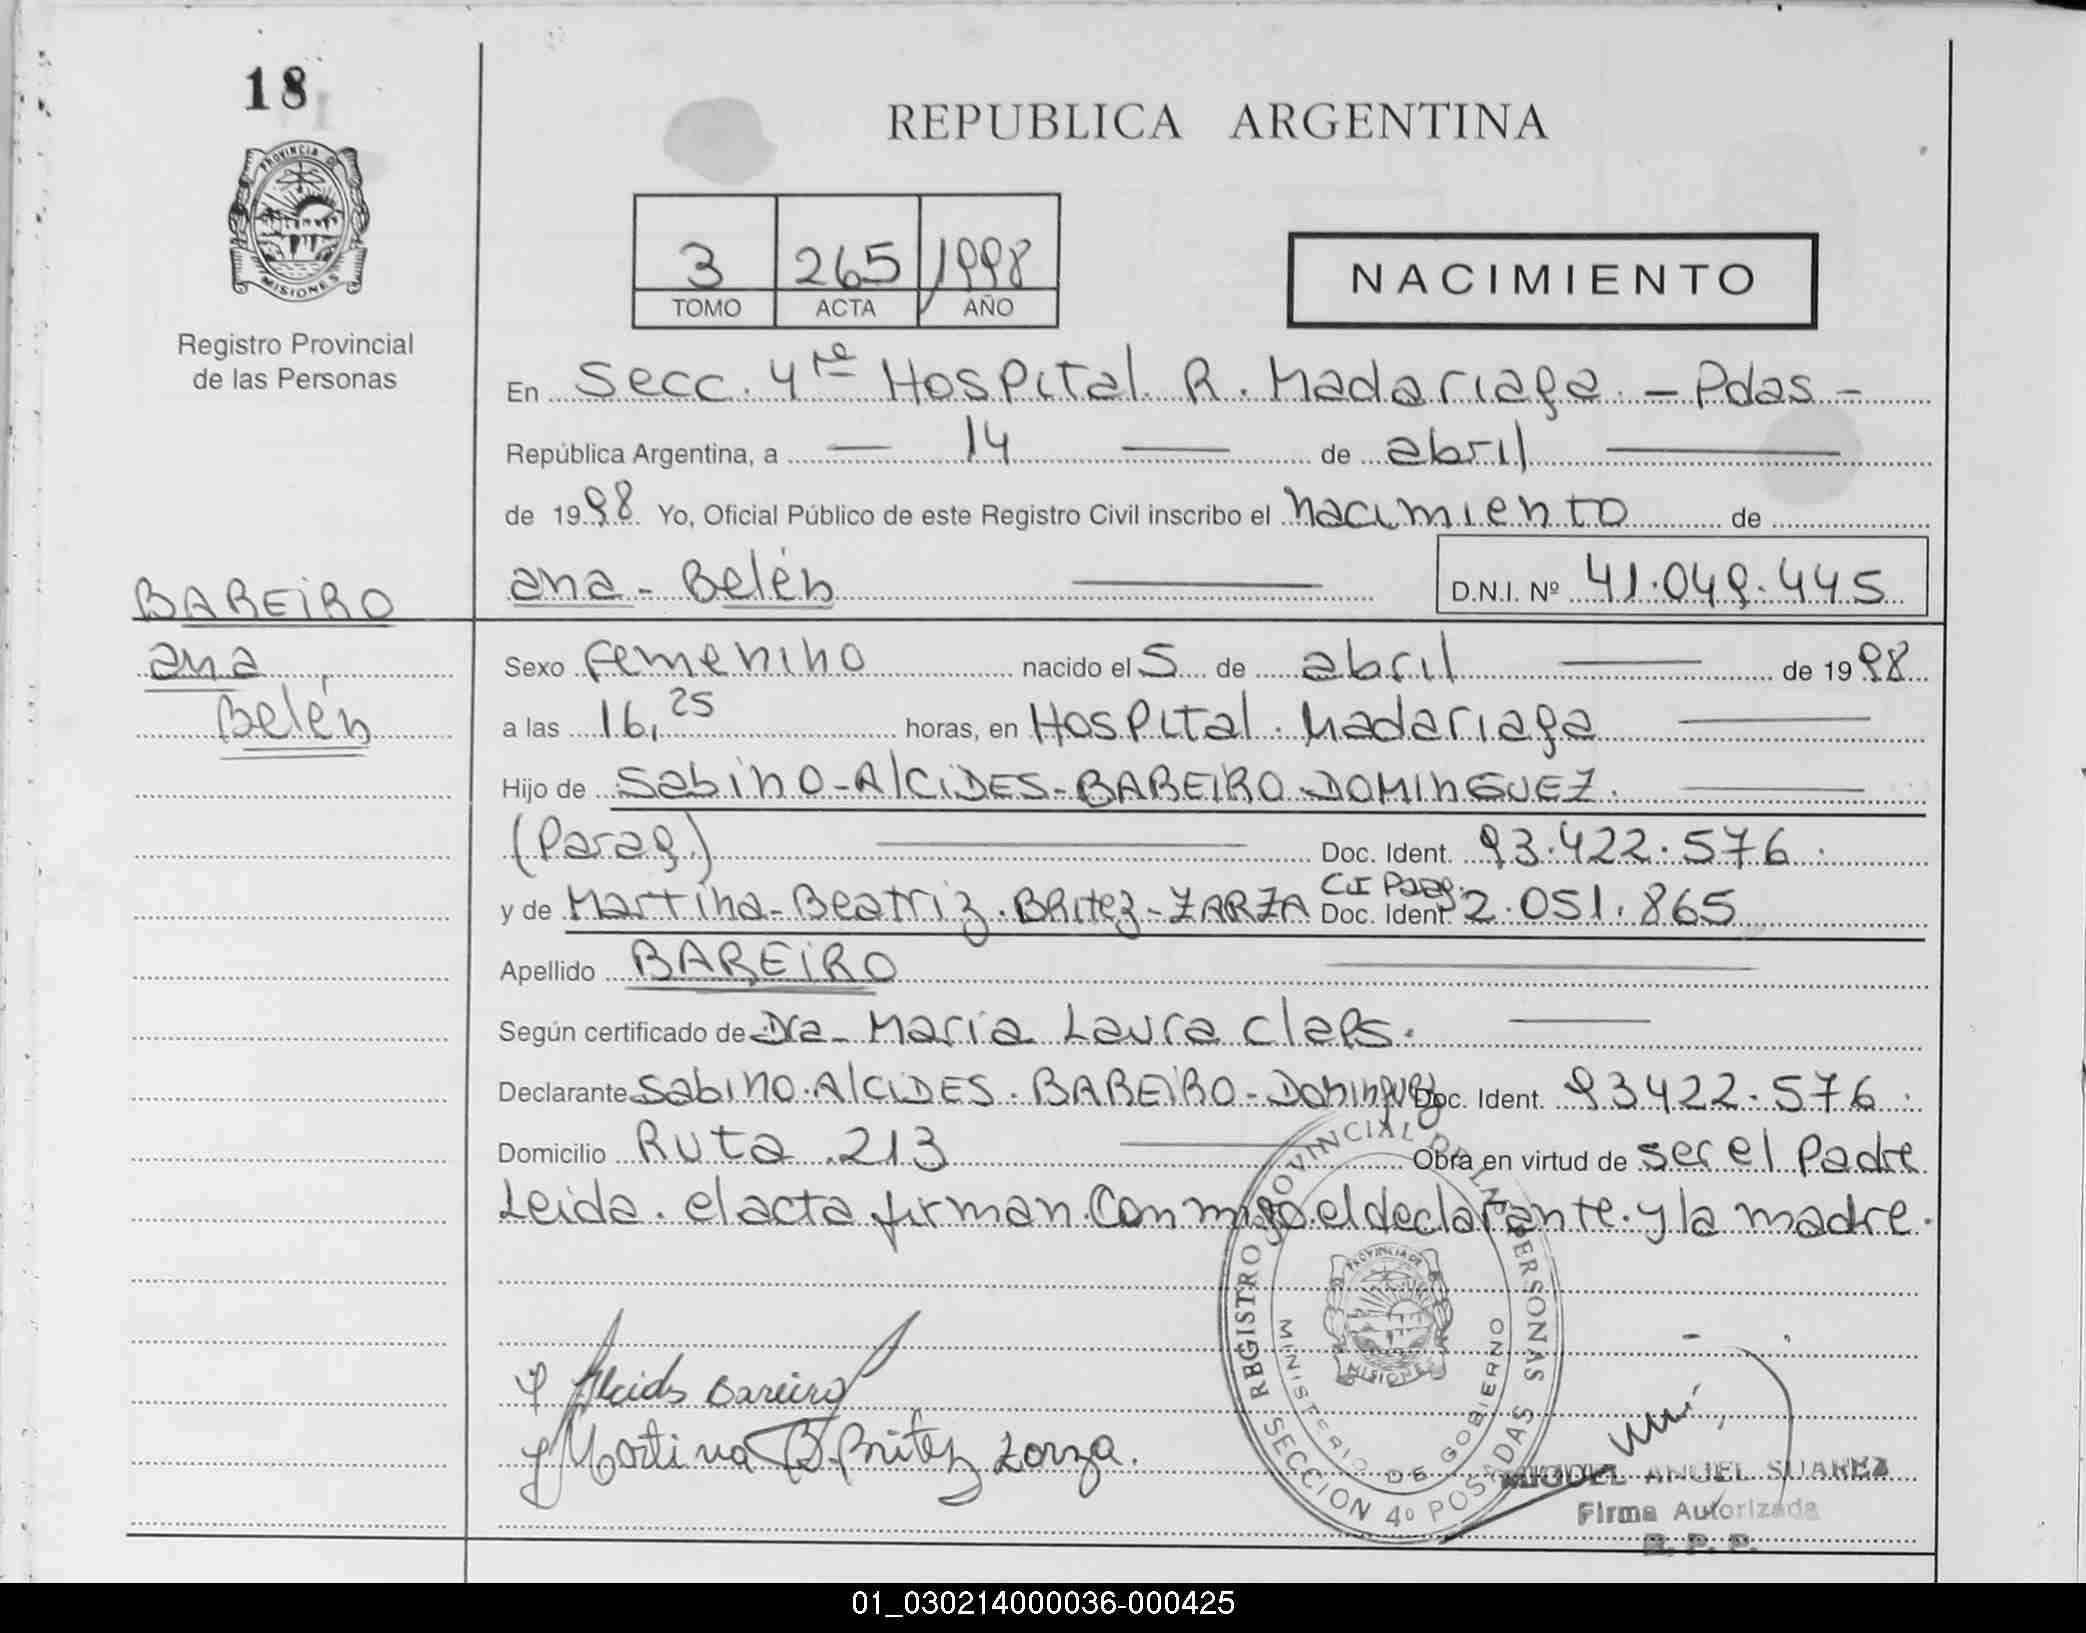 18
PROVINCIA DE
MISIONES
Registro Provincial
de las Personas
BAREIRO
ana
Belén
REPUBLICA ARGENTINA
3 265 1998
TOMO ACTA AÑO
NACIMIENTO
En Secc. 4ta Hospital R. Madariaga - Pdas -
República Argentina, a 14 de abril
de 1998 Yo, Oficial Público de este Registro Civil inscribo el nacimiento de
ana - Belén D.N.I. Nº 41.049.445
Sexo femenino nacido el 5 de abril de 1998
a las 16,25 horas, en Hospital Madariaga
Hijo de Sabino - AlCiDES - BAREIRO - DOMINGUEZ.
(Parag.) Doc. Ident. 93.422.576.
y de Martina - Beatriz - BRitez - ZARZA CI Parag. Doc. Ident. 2.051.865
Apellido BAREIRO
Según certificado de Dra - Maria Laura Claps.
Declarante Sabino - AlCiDES - BAREIRO - Dominguez Doc. Ident. 93422.576.
Domicilio Ruta 213 Obra en virtud de ser el Padre
Leida el acta firman Con migo el declarante y la madre.
Alcides Bareiro
Martina B. Britez Zarza.
REGISTRO PROVINCIAL DE LAS PERSONAS
SECCION 4º POSADAS
MINISTERIO DE GOBIERNO
PROVINCIA DE
MISIONES
MIGUEL ANGEL SUAREZ
Firma Autorizada
R. P. P.
01_030214000036-000425